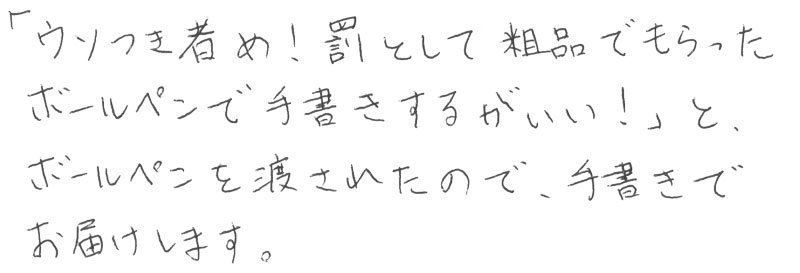 「ウソつき者め！罰として粗品でもらった
ボールペンで手書きするがいい！」と、
ボールペンを渡されたので、手書きで
お届けします。